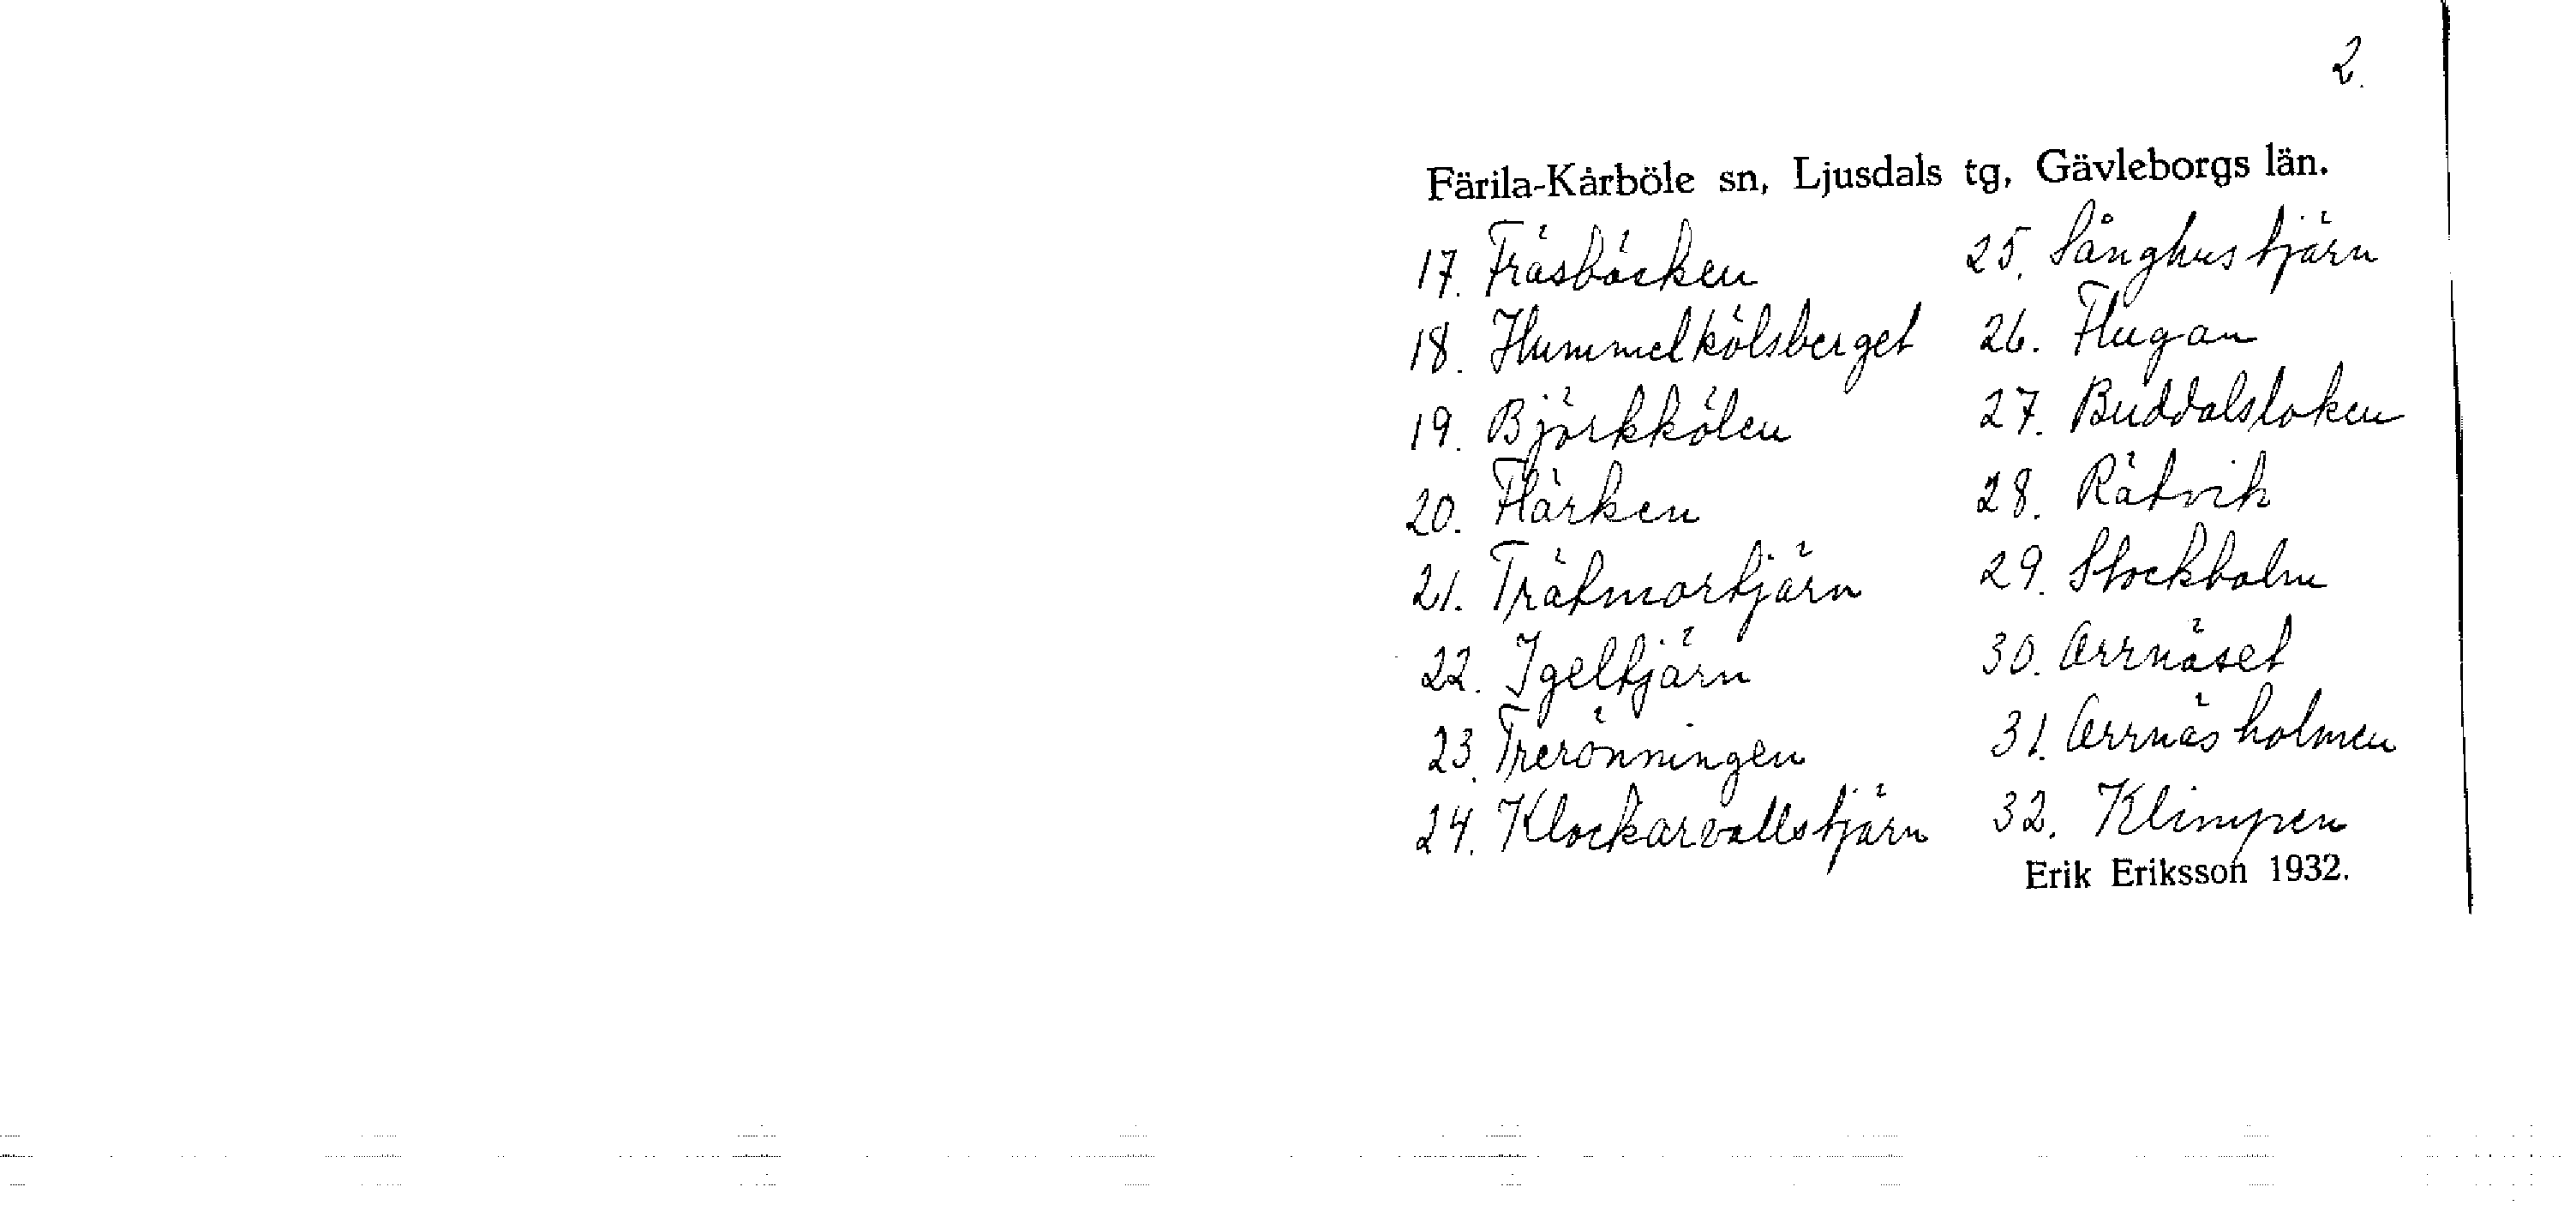 2.
Färila-Kårböle sn, Ljusdals tg, Gävleborgs län.
17. Fräsbäcken
18. Hummelkölsberget
19. Björkkölen
20. Flärken
21. Trätmortjärn
22. Igeltjärn
23. Trerönningen
24. Klockarvallstjärn
25. Sånghustjärn
26. Flugan
27. Buddalsloken
28. Rätvik
29. Stockholm
30. Orrnäset
31. Orrnäsholmen
32. Klimpen
Erik Eriksson 1932.